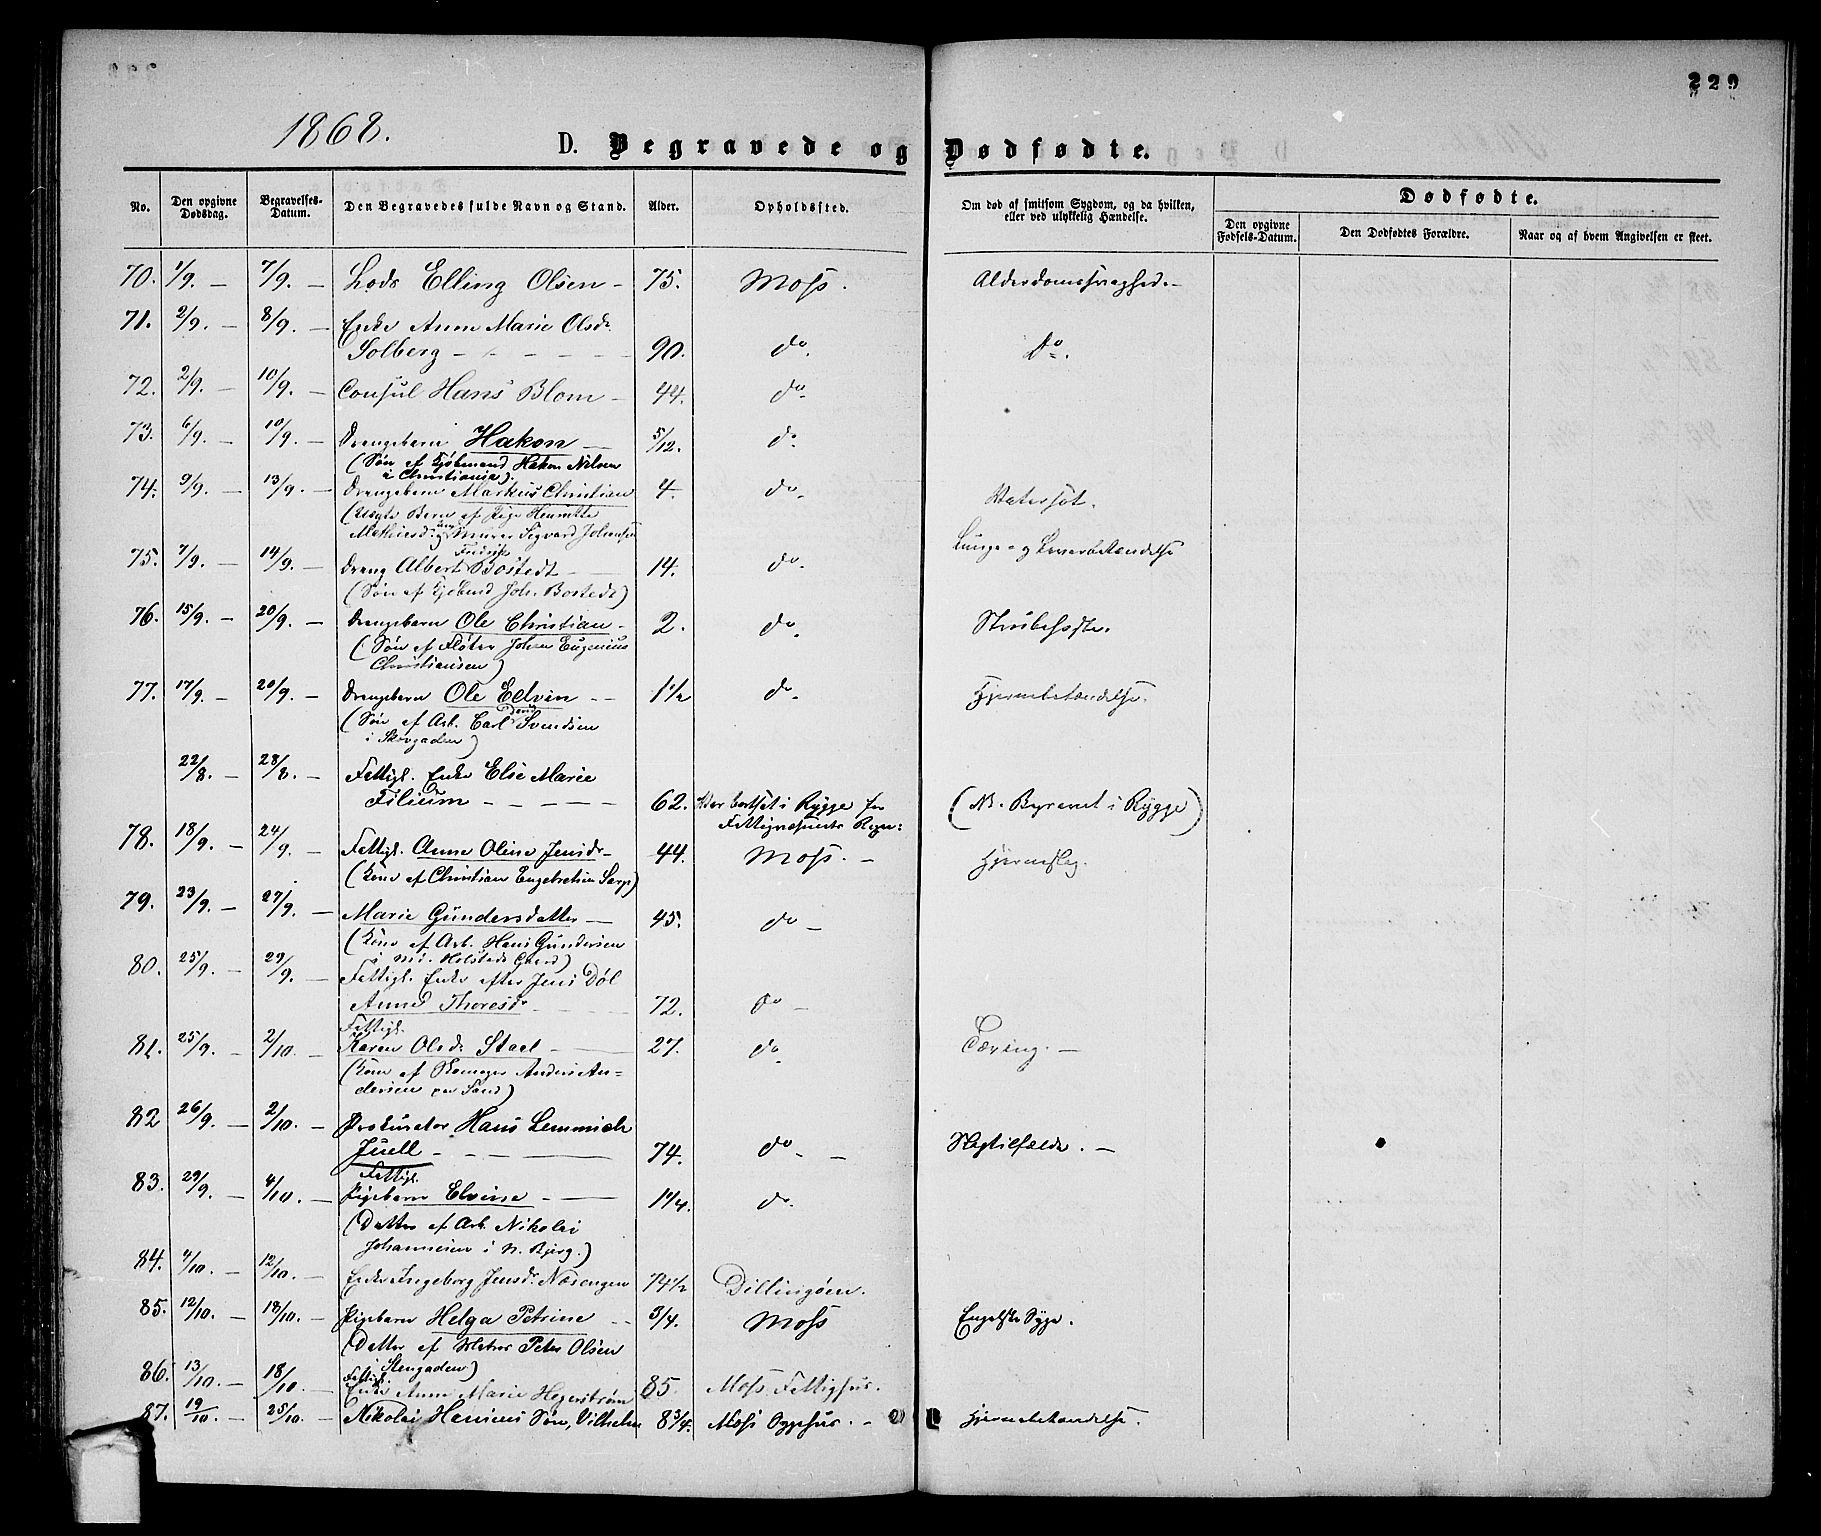 229
1868.
D. Begravede og Dødfødte.
No.
Den opgivne Dødsdag.
Begravelses-Datum.
Den Begravedes fulde Navn og Stand.
Alder.
Opholdssted.
Om død af smitsom Sygdom, og da hvilken, eller ved ulykkelig Hændelse.
Dødfødte.
Den opgivne Fødsels-Datum.
Den Dødfødtes Forældre.
Naar og af hvem Angivelsen er skeet.
70. 1/9. — 7/9. — Lods Elling Olsen — 75. Moss. Alderdomssvaghed. —
71. 2/9. — 8/9. — Enke Anne Marie Olsdr.
Solberg — — — — 90. do. Do.
72. 2/9. — 10/9. — Consul Hans Blom — 44. do.
73. 6/9. — 10/9. — Drengebarn Hakon — 5/12. do.
(Søn af Kjøbmand Hakon Nilsen
i Christiania).
74. 9/9. — 13/9. — Drengebarn Markus Christian 4. do. Vatersot.
(Uægte Barn af Pige Henriette
Mathiesd. og Murer Sigvard Johansen
75. 7/9. — 14/9. — Dreng Albert Fredrik Bostedt — 14. do. Lunge- og Leverbetændelse
(Søn af Kjøbmd Joh. Bostedt)
76. 15/9. — 20/9. — Drengebarn Ole Christian — 2. do. Strubehoste.
(Søn af Fløter Johan Eugenius
Christiansen)
77. 17/9. — 20/9. — Drengebarn Ole Edvin — 1 1/2 do. Hjernebetændelse.
(Søn af Arb. Carl Svendsen
i Skovgaden)
22/8. — 28/8. — Fattigl. Enke Else Marie
Filium — — — — 62. Var bortsat i Rygge for (NB. Begravet i Rygge)
Fattigvæsenets Regn:
78. 18/9. — 24/9. — Fattigl. Anne Oline Jensdr. — 44. Moss. — Hjerneslag.
(Kone af Christian Engebretsen Sarp)
79. 23/9. — 27/9. — Marie Gundersdatter — 45. do —
(Kone af Arb. Hans Gundersen
i Md. Holstads Gaard)
80. 25/9. — 29/9. — Fattigl. Enke efter Jens Døl
Anne Thoresdr — 72. do —
81. 25/9. — 2/10. — Fattigl.
Karen Olsdr Stael — 27. do. Tæring. —
(Kone af Skomager Anders An-
dersen paa Sand)
82 26/9. — 2/10. — Prokurator Hans Lemmich
Juell — — — 74. do. — Slagtilfælde. —
83. 29/9. — 4/10. — Fattigl.
Pigebarn Elvine — 1 1/4. do.
(Datter af Arb. Nikolai
Johannesen i N. Bjerg.)
84. 4/10. — 12/10. — Enke Ingeborg Jensdr. Næsengen 74 1/2 Dillingøen.
85. 12/10. — 18/10. — Pigebarn Helga Petrine — 3/4. Moss Engelske Syge.
(Datter af Peter Olsen
i Stengaden)
86. 13/10. — 18/10. — Fattigl.
Enke Anne Marie Hegerstrøm 85. Moss Fattighus.
87. 19/10. — 25/10. — Nikolai Søn, Vilhelm 8 3/4. Moss — Hjernebetændelse.